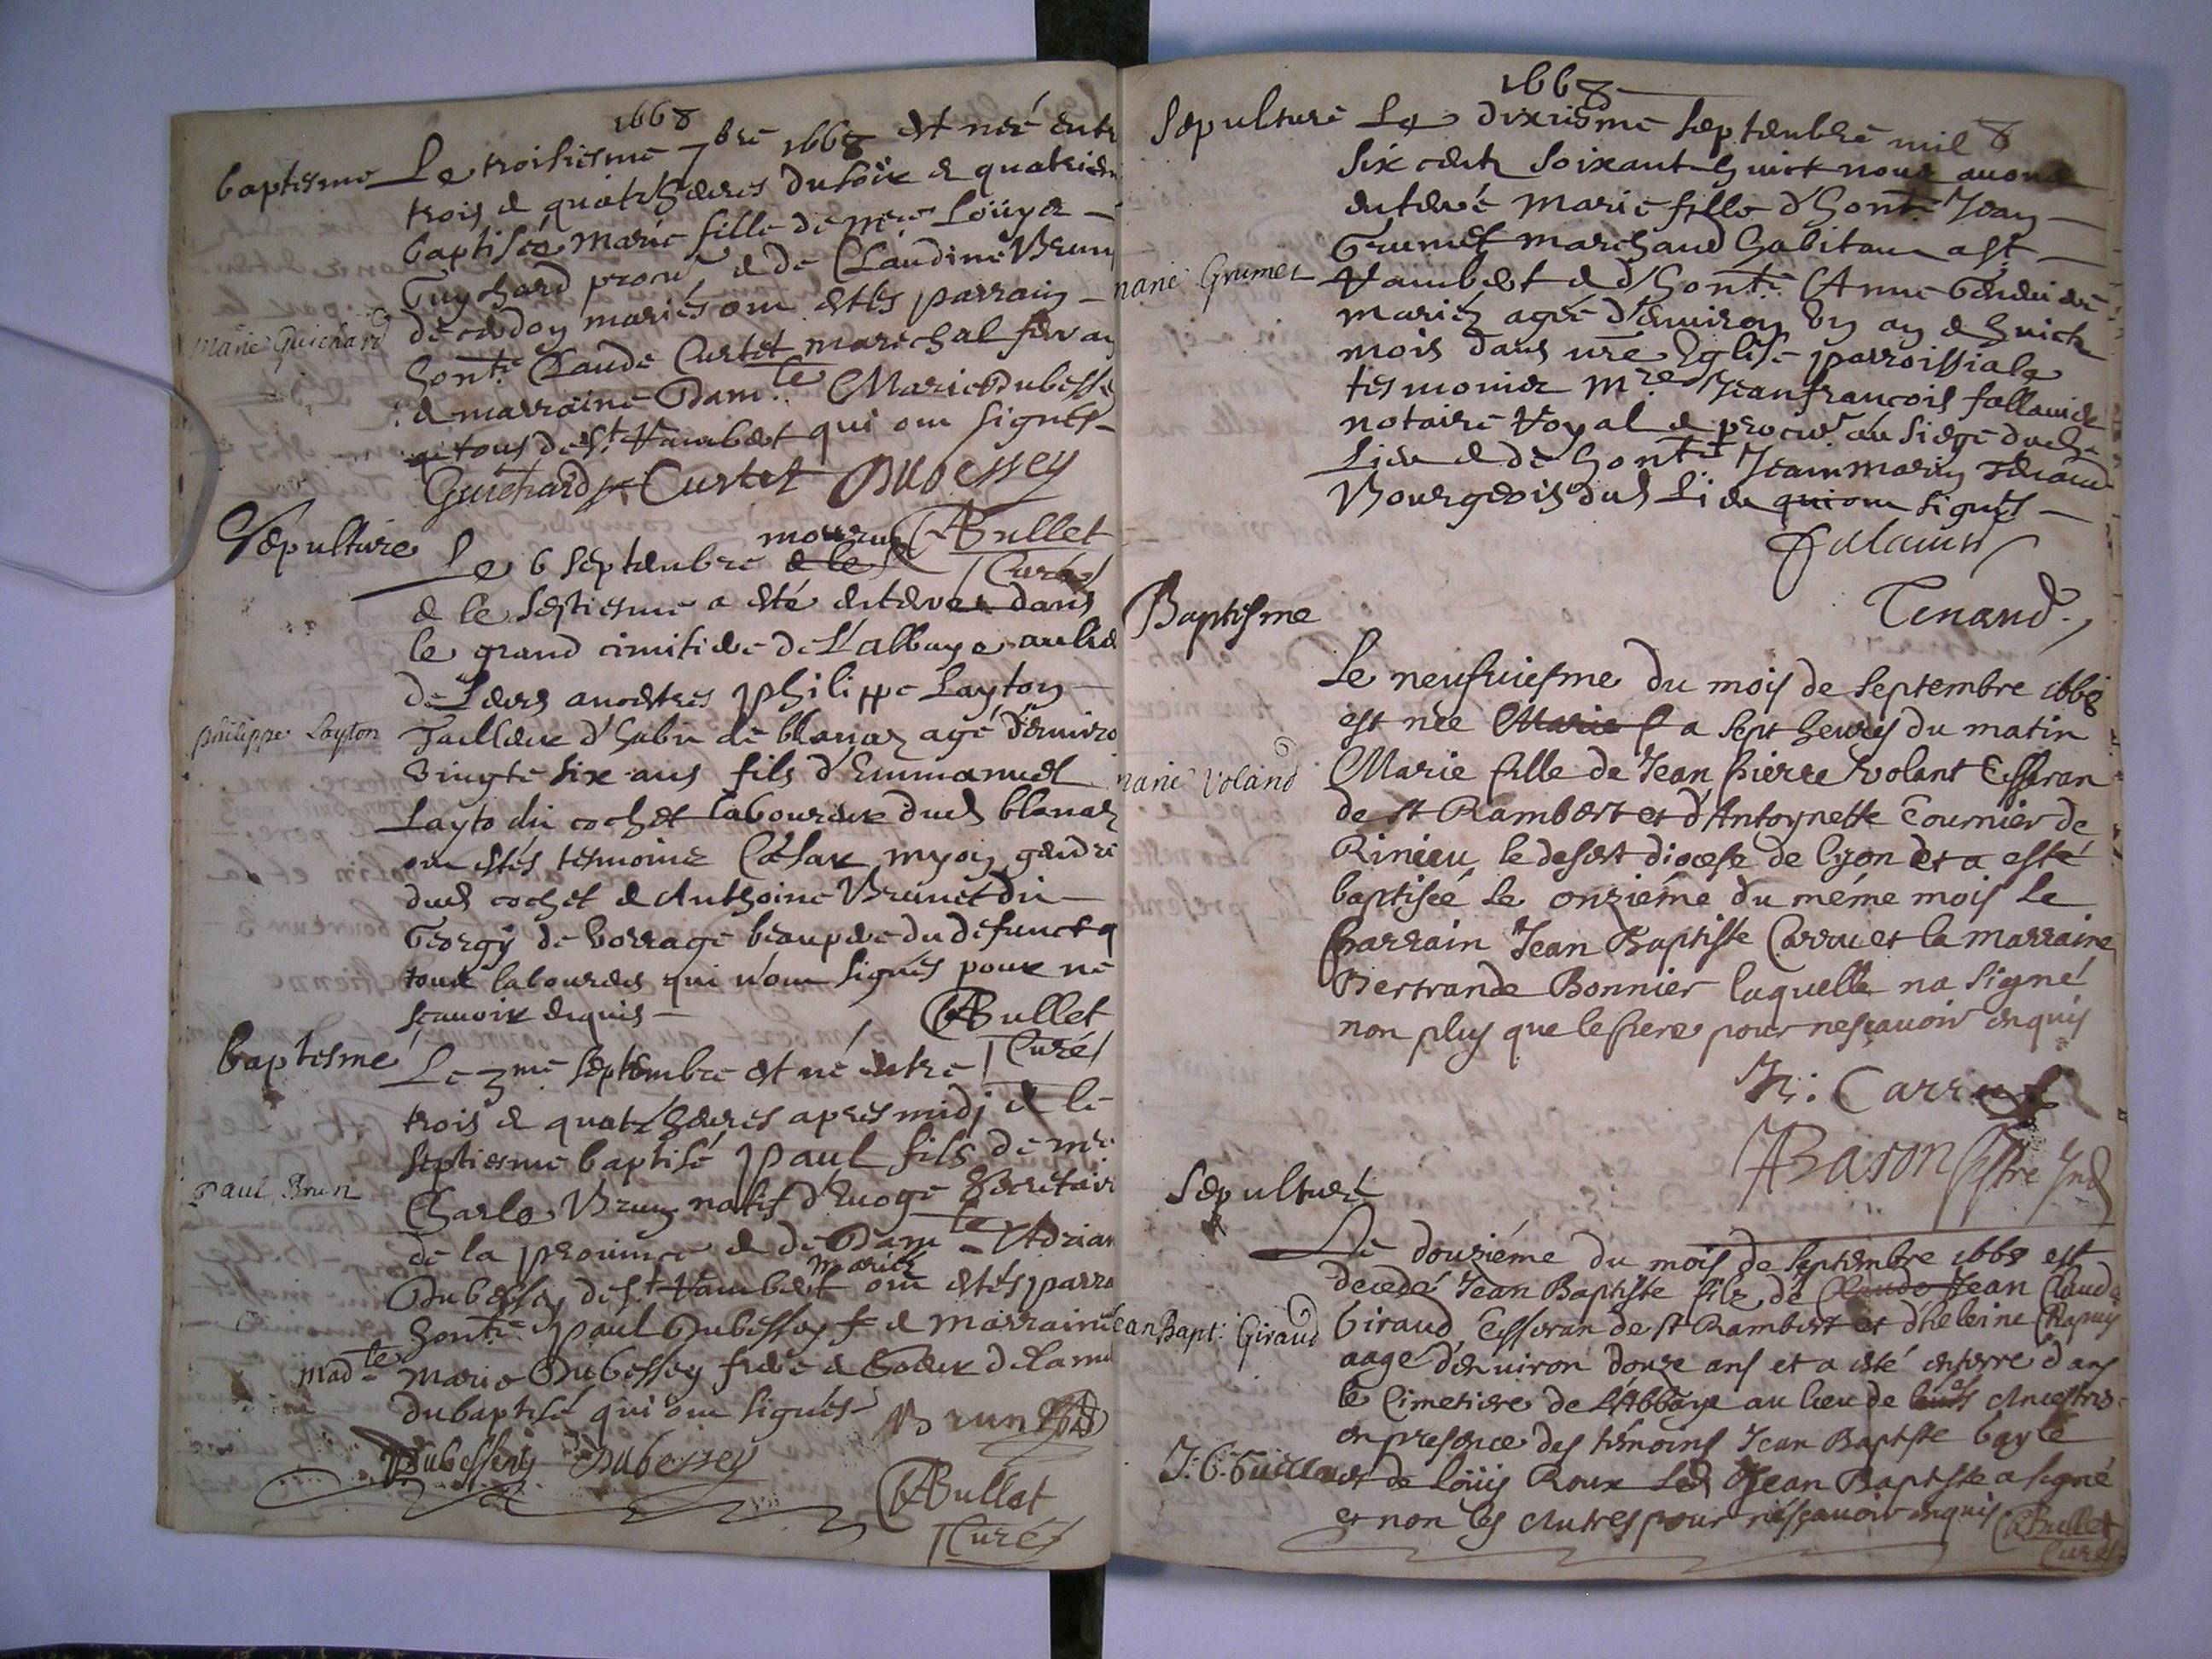 1668
baptesme Le troisiesme 7bre 1668 est neé entr
trois & quatr heures du soir & quatriem
baptiseé Marie fille de Mre Loüys
Guychard procur & de Claudine Brun
Marie Guichard
de cerdon mariés ont estés parrain
hont. Claude Curtet mareschal ferran
& marraine Dam.lle Marie Dubesse
tous de St. Rambert qui ont signés
Guichard Curtet Dubessey
ABullet
Curé
Sepulture
Le 6 septembre mourut
& le septiesme a esté enterré dans
le grand cimitiere de L'abbaye au lie
de Leurs ancestres philippe Layton
philippe Layton
Tailleur d'habit de blanaz agé d'enviro
vingte six ans fils d'Emmanuel
Layto dit cochet laboureur dud blanaz
ont estés tesmoins Cesar myon gendre
dud cochet & Anthoine Brunet dit
Georgy de vorrage beaupere du defunct
tous laboureurs qui n'ont signés pour ne
scavoir enquis
ABullet
Curé
baptesme
Le 3me septembre est né entre
trois & quatr heures apres midj & le
septiesme baptisé paul fils de Mre
Paul Brun
Charle Brun natif d'Euoge secretair
de la province & de Dam.lle Adrian
Dubessey de St. Rambert mariés ont estés parra
hont. paul Dubessey & marraine
madlle Marie Dubessey frere & soeur de la me
du baptisé qui ont signés
Brun
Dubessey Dubessey
ABullet
Curé
1668
Sepulture Le dixiesme septembre mil
six cent soixant huict nous avons
enterré marie fille d'hont. Jean
Grumet marchand habitant a St
marie Grumet
Rambert & d'hont. Anne
mariéz agée d'environ un an & huict
mois dans nre Eglise parroissiale
tesmoins Mre Jean francois fallavier
notaire Royal & procur. au siege dud
Lieu & de hont. Jean marin Tenand
Bourgeois dud Lieu qui ont signés
Falavier
Tenand.
Baptisme
Le neufuiesme du mois de septembre 1668
est née a sept heures du matin
marie Voland
Marie fille de Jean pierre Volant Esseran
de St Rambert et d'Antoynette Tournier de
Rinieu le desert diocese de lyon et a esté
baptisée le onziéme du méme mois le
parrain Jean Baptiste Carru et la marraine
Bertrande Bonnier laquelle na signé
non plus que le pere pour nesçauoir enquis
Carru
Baron
Sepulture
Le douziéme du mois de septembre 1668 est
decedé Jean Baptiste filz de Jean Claude
Jean Bapt. Giraud
Giraud Esseran de St Rambert et d'heleine
aagé d'enuiron douze ans et a esté enterré dans
le Cimetiere de L'Abbaye au lieu de leurs Ancestres
en presence des témoins Jean Baptiste bayle
J. B. Guillau et de Loüis Roux Led Jean Baptiste a signé
et non les Autres pour nesçauoir enquis
ABullet
Curé